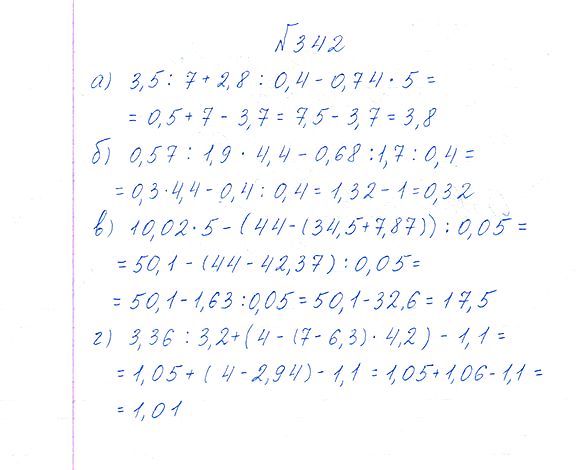 №342
а) 3,5 : 7 + 2,8 : 0,4 - 0,74 · 5 =
= 0,5 + 7 - 3,7 = 7,5 - 3,7 = 3,8
б) 0,57 : 1,9 · 4,4 - 0,68 : 1,7 : 0,4 =
= 0,3 · 4,4 - 0,4 : 0,4 = 1,32 - 1 = 0,32
в) 10,02 · 5 - (44 - (34,5 + 7,87)) : 0,05 =
= 50,1 - (44 - 42,37) : 0,05 =
= 50,1 - 1,63 : 0,05 = 50,1 - 32,6 = 17,5
г) 3,36 : 3,2 + (4 - (7 - 6,3) · 4,2) - 1,1 =
= 1,05 + (4 - 2,94) - 1,1 = 1,05 + 1,06 - 1,1 =
= 1,01